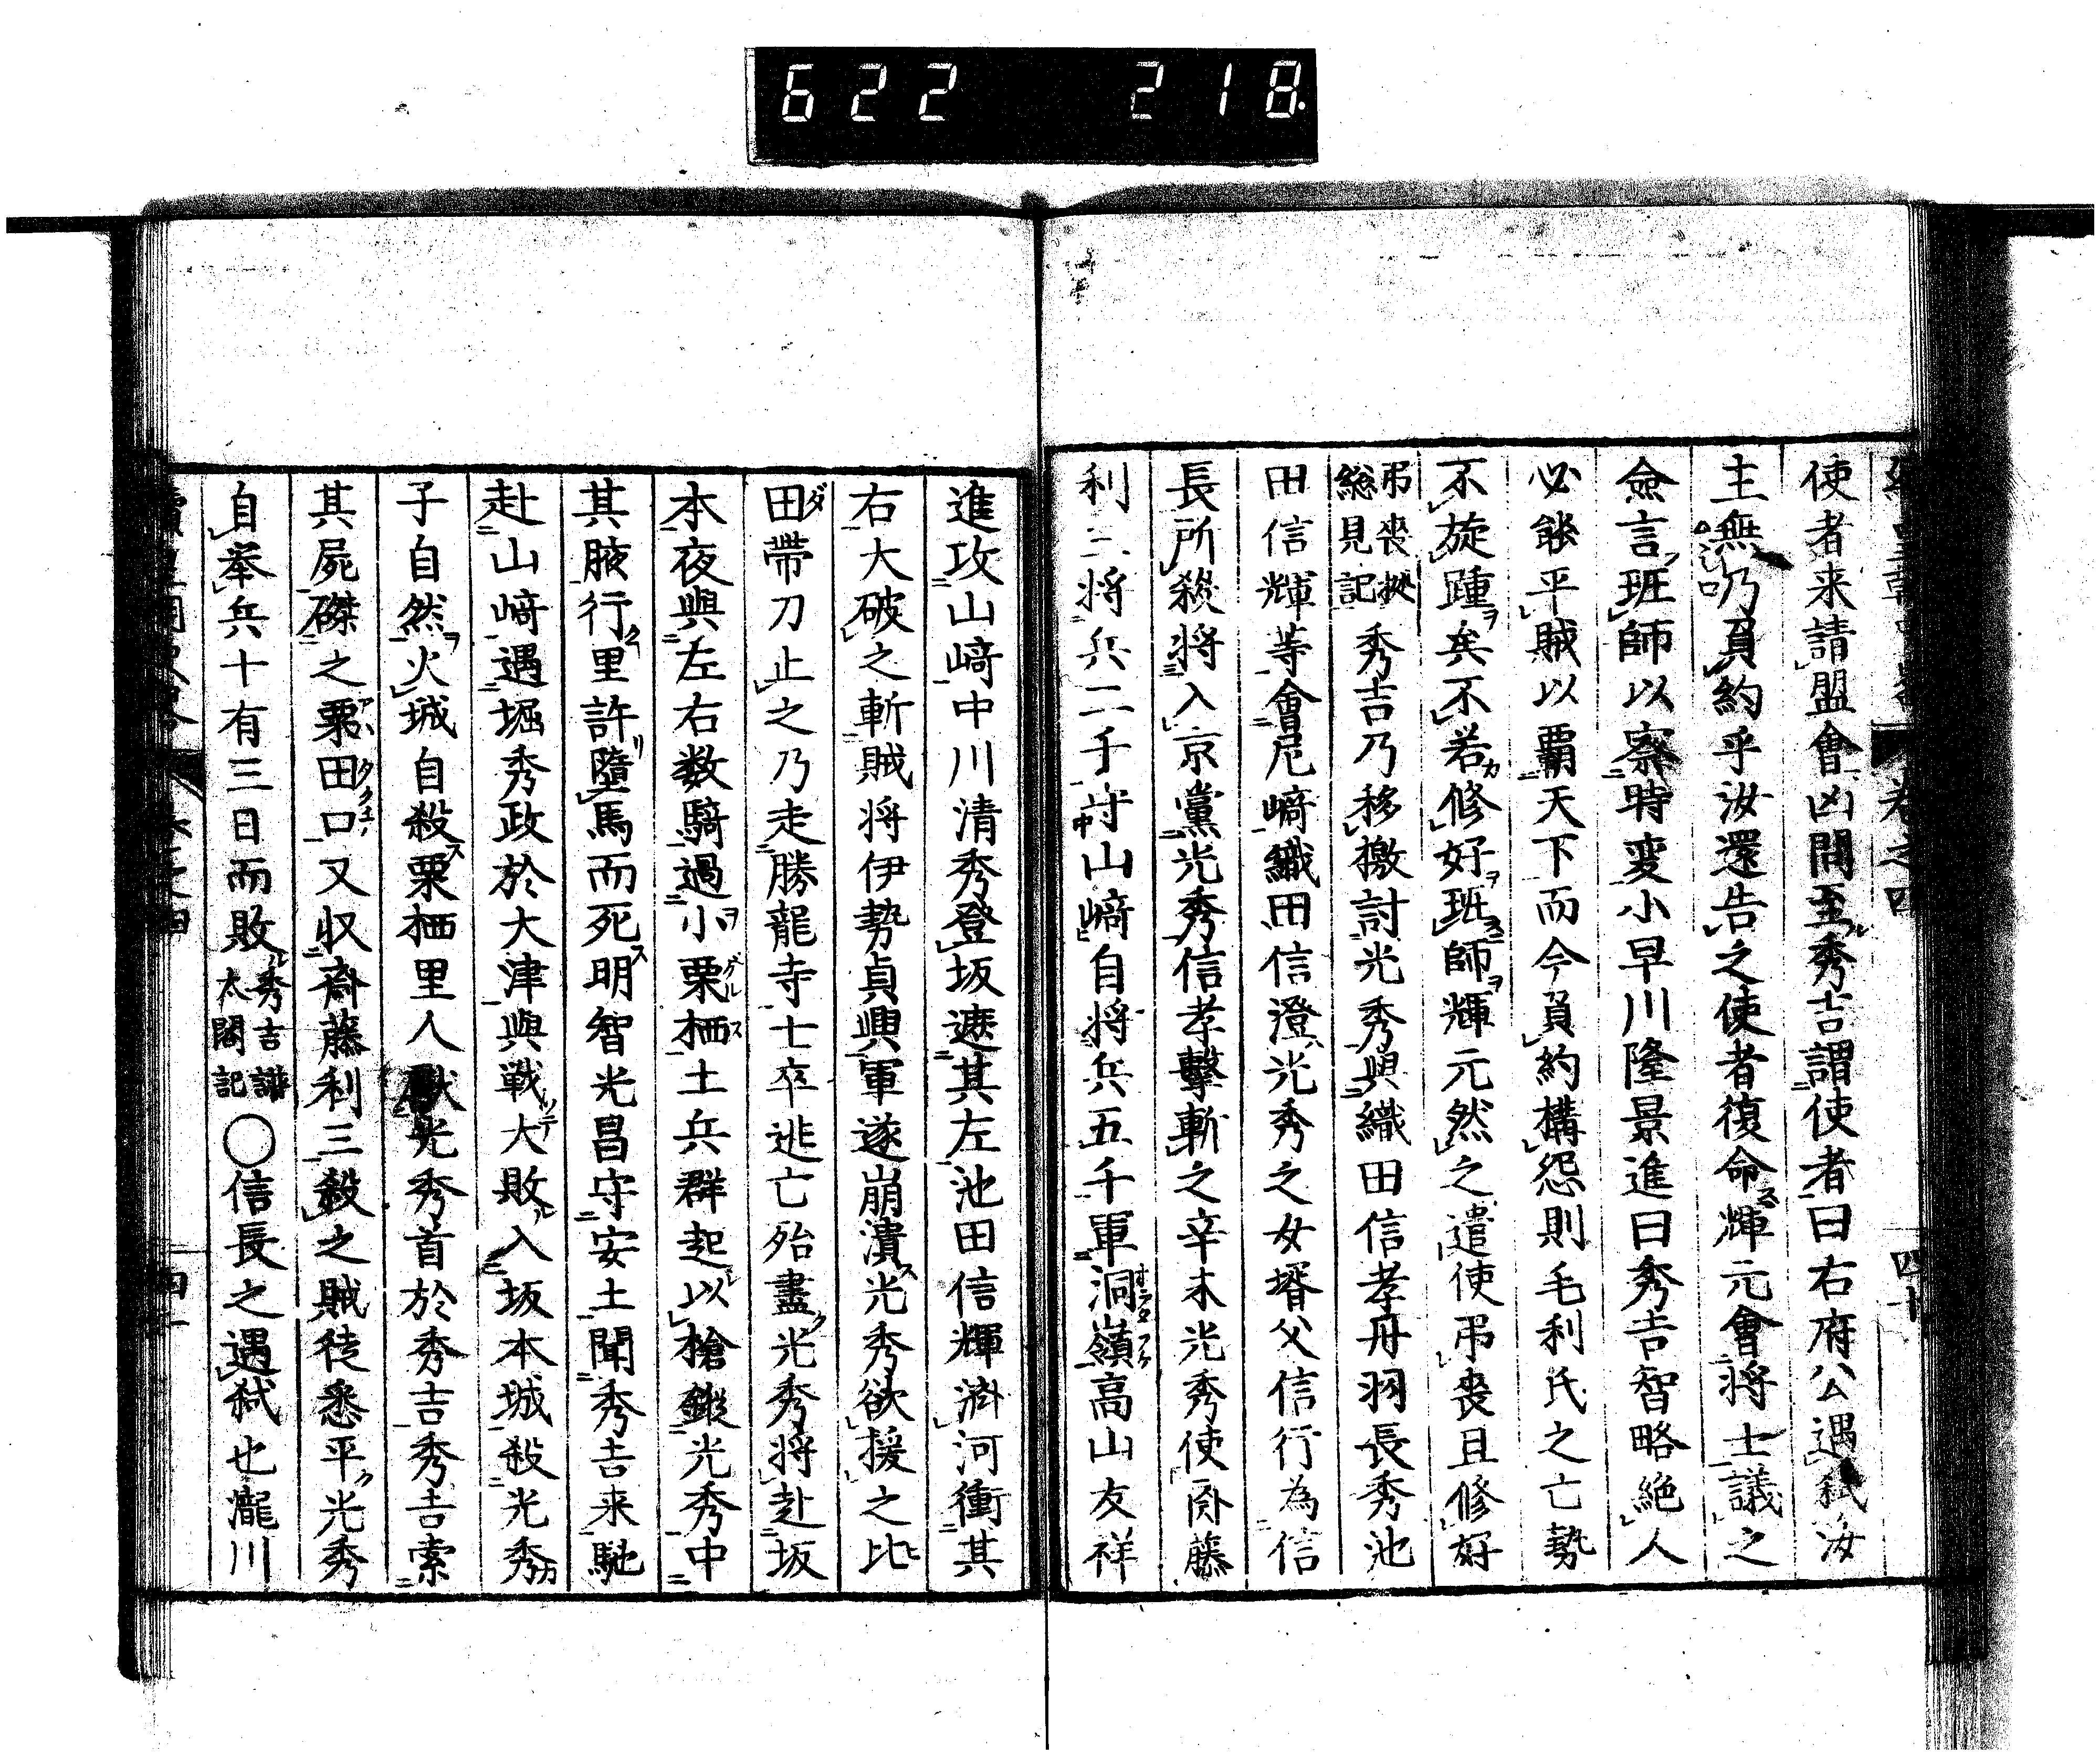 622 218
卷之四 四十
使者来請盟會凶聞至秀吉謂使者曰右府公遇弑汝
主無乃負約乎汝還告之使者復命輝元會将士議之
僉言班師以察時変小早川隆景進曰秀吉智略絶人
必能平賊以覇天下而今負約構怨則毛利氏之亡勢
不旋踵矣不若修好班師輝元然之遣使弔喪且修好
弔喪拠
総見記
秀吉乃移檄討光秀秀與織田信孝丹羽長秀池
田信輝等會尼﨑織田信澄光秀之女壻父信行為信
長所殺将入京黨光秀信孝擊斬之辛未光秀使斎藤
利三将兵二千守山﨑自将兵五千軍洞嶺高山友祥
進攻山﨑中川清秀登坂遮其左池田信輝濟河衝其
右大破之斬賊将伊勢貞興軍遂崩潰光秀欲援之比
田帶刀止之乃走勝龍寺士卒逃亡殆盡光秀将赴坂
本夜與左右数騎過小栗栖土兵群起以槍鏦光秀中
其腋行里許墮馬而死明智光昌守安土聞秀吉来馳
赴山﨑遇堀秀政於大津與戦大敗入坂本城殺光秀
子自然火城自殺栗栖里人獻光秀首於秀吉秀吉索
其屍磔之粟田口又収斎藤利三殺之賊徒悉平光秀
自挙兵十有三日而敗
秀吉譜
太閤記
○信長之遇弑也瀧川